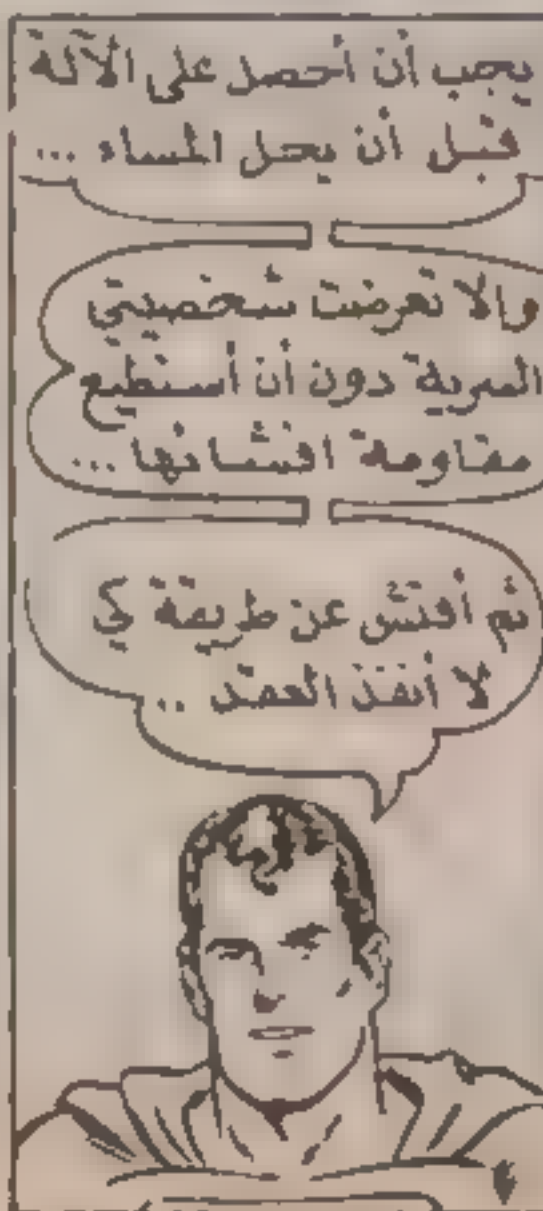 يجب أن أحصل على الآلة
قبل أن يحل المساء ...
والا تعرضت شخصيتي
السرية دون أن أستطيع
مقاومة افشائها ...
ثم أفتش عن طريقة كي
لا أنفذ العقد ..